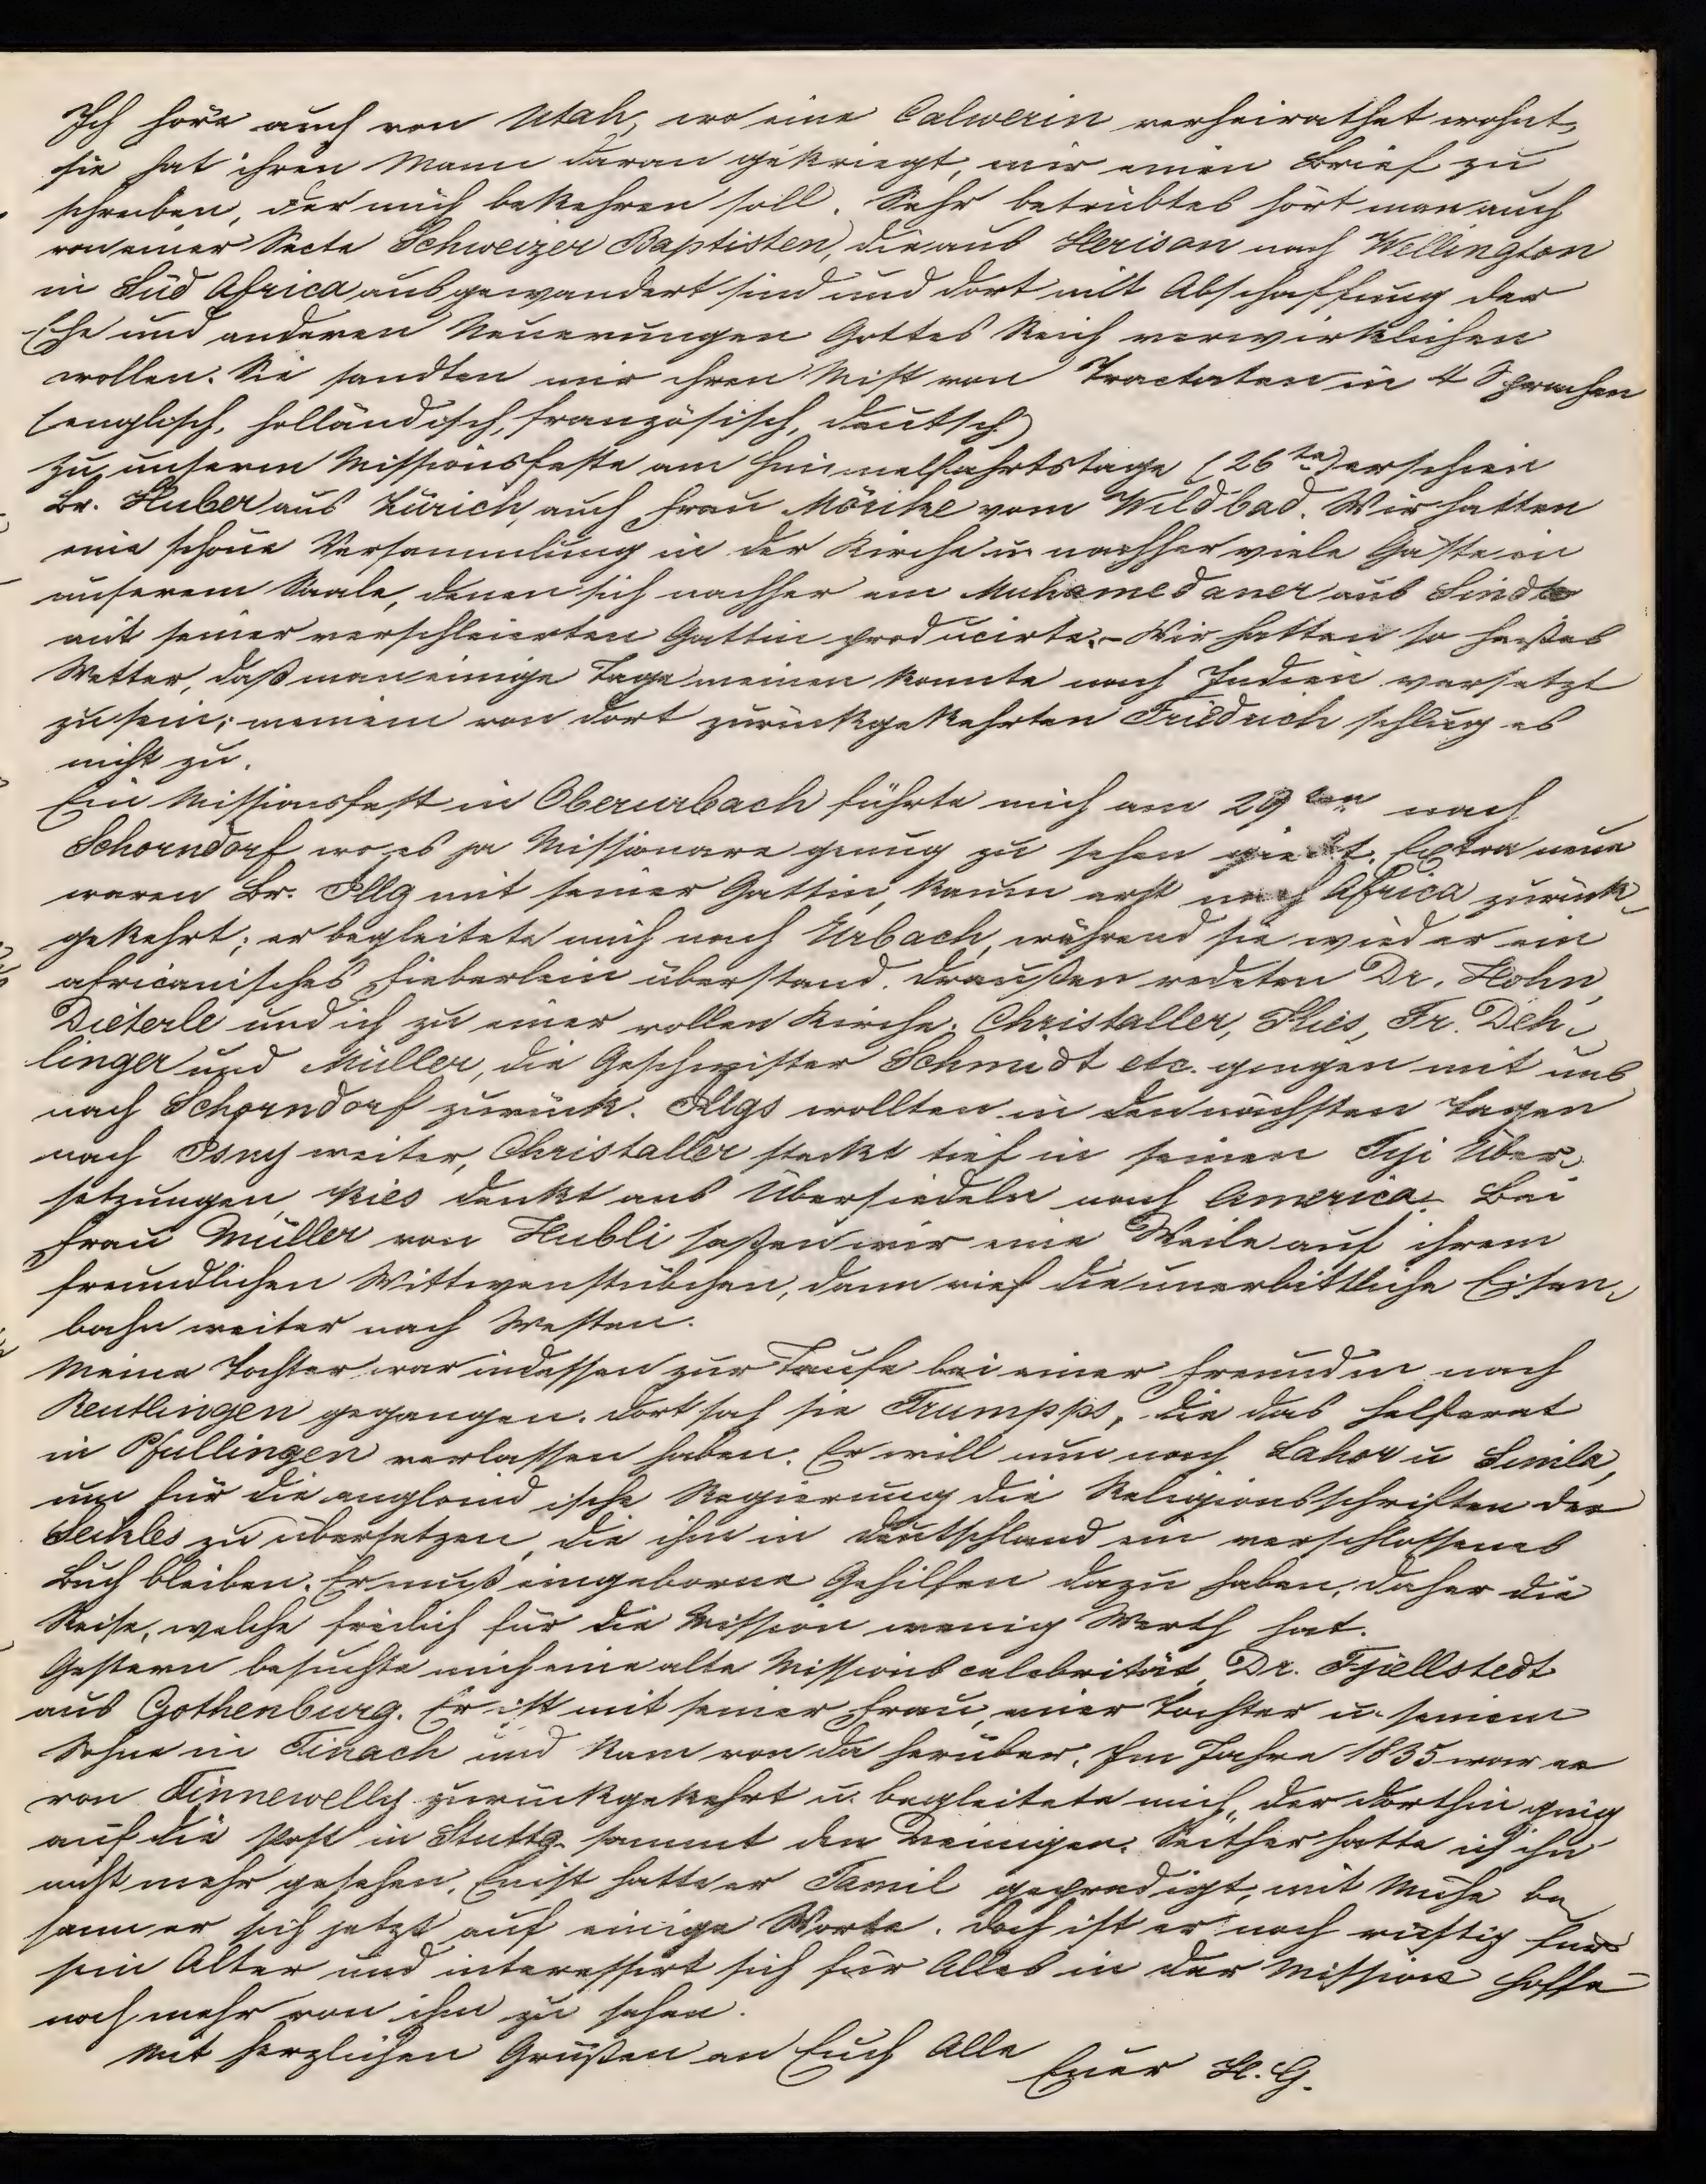 Ich höre auch von Utah, wo eine Calwerin verheirathet wohnt,
sie hat ihren Mann daran gekriegt, mir einen Brief zu
schreiben, der mich bekehren soll. Sehr betrübtes hört man auch
von einer Secte Schweizer Baptisten, die aus Herisau nach Wellington
in Süd Africa ausgewandert sind und dort mit Abschaffung der
Ehe und anderen Neuerungen Gottes Reich verwirklichen
wollen. Sie sandten mir ihren Mist von Tractaten in 4 Sprachen
(englisch, holländisch, französisch, deutsch)
Zu unserem Missionsfeste am Himmelfahrtstage (26ten) erschien
Br. Huber aus Zürich, auch Frau Mörike vom Wildbad. Wir hatten
eine schöne Versammlung in der Kirche u. nachher viele Gäste in
unserem Saale, denen sich nachher ein Muhamedaner aus Sindh
mit seiner verschleierten Gattin producirte. - Wir hatten so heißes
Wetter, daß man einige Tage meinen konnte nach Indien versetzt
zu sein; meinem von dort zurückgekehrten Friedrich schlug es
nicht zu.
Ein Missionsfest in Oberurbach führte mich am 29ten nach
Schorndorf wo es ja Missionare genug zu sehen giebt. Extra neue
waren Br. Illg mit seiner Gattin, kaum erst nach Africa zurück-
gekehrt; er begleitete mich nach Urbach, während sie wieder ein
africanisches Fieberlein überstand. Draußen redeten Dr. Hohn,
Dieterle und ich zu einer vollen Kirche. Christaller, Kies, Fr. Deh-
linger und Müller, die Geschwister Schmidt etc. gingen mit uns
nach Schorndorf zurück. Illgs wollten in den nächsten Tagen
nach Isny weiter, Christaller steckt tief in seinen Tschi Über-
setzungen, Kies denkt ans Übersiedeln nach America. Bei
Frau Müller von Hubli saßen wir eine Weile auf ihrem
freundlichen Wittwenstübchen, dann rief die unerbittliche Eisen-
bahn weiter nach Westen.
Meine Tochter war indessen zur Taufe bei einer Freundin nach
Reutlingen gegangen. Dort sah sie Trumpps, die das Helferat
in Pfullingen verlassen haben. Er will nun nach Lahor u Simla,
um für die angloindische Regierung die Religionsschriften der
Seikhs zu übersetzen, die ihm in Deutschland ein verschlossenes
Buch bleiben. Er muß eingeborne Gehilfen dazu haben, daher die
Reise, welche freilich für die Mission wenig Werth hat.
Gestern besuchte mich eine alte Missionscelebrität, Dr. Fjellstedt
aus Gothenburg. Er ist mit seiner Frau, einer Tochter u. seinem
Sohne in Teinach und kam von da herüber. Im Jahre 1835 war er
von Tinnewelly zurückgekehrt u. begleitete mich, der dorthin ging
auf die Post in Stuttg. sammt den Meinigen. Seither hatte ich ihn
nicht mehr gesehen. Einst hatte er Tamil gepredigt, mit Mühe be
sann er sich jetzt auf einige Worte. Doch ist er noch rüstig für
sein Alter und interessirt sich für Alles in der Mission Hoffe
noch mehr von ihm zu sehen.
Mit herzlichen Grüßen an Euch Alle
Euer H. G.